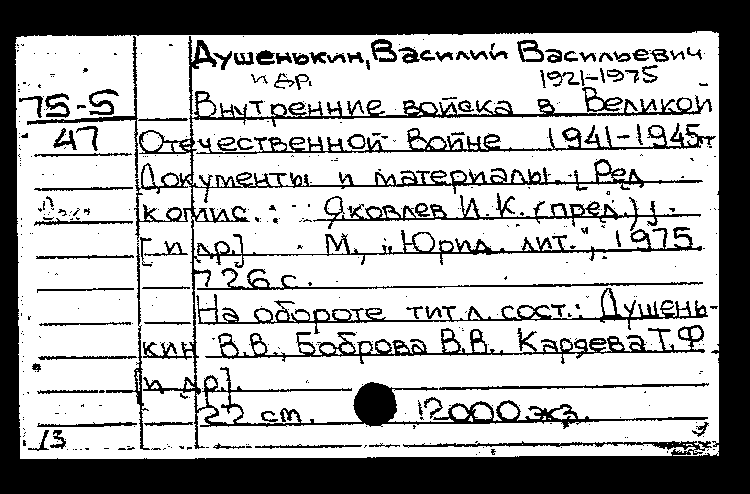 Душенькин, Василий Васильевич
и др. 1921-1975
75-5 Внутренние войска в Великой
47 Отечественной войне 1941-1945гг
Документы и материалы. [Ред
комис.: Яковлев И.К. (пред.)
[и др.]. М., "Юрид. лит.", 1975.
726 с.
На обороте тит.л. сост.: Душень-
кин В.В., Боброва В.В., Каряева Т.Ф.
[и др.].
22 cm. 12000 экз.
13